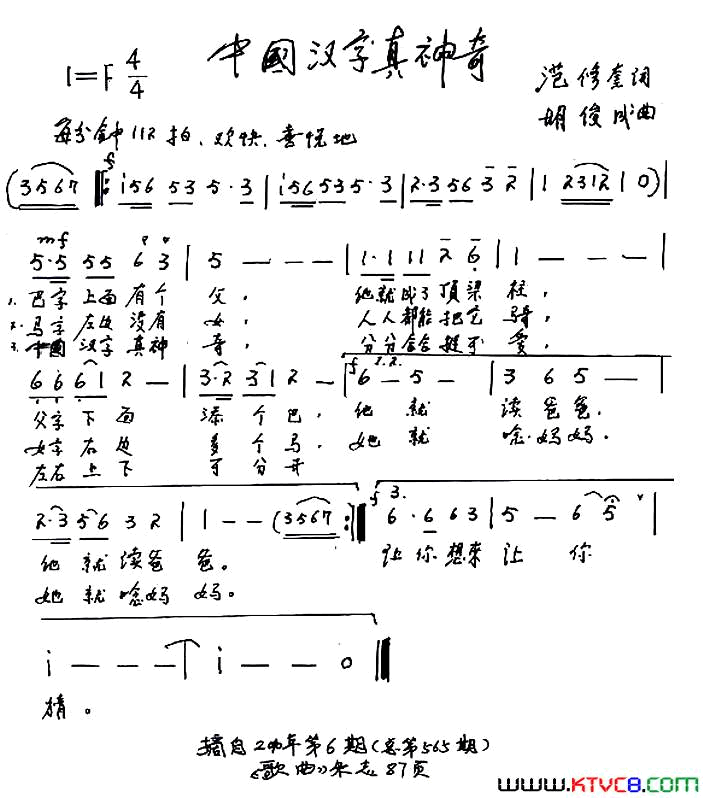 中國汉字真神奇
1=F 4/4
范修奎词
胡俊成曲
每分钟112拍、欢快、喜悦地
f
(3567 ‖: i56 53 5·3 | i56 535·3 | 2·3 56 3 2 | 1 2312 1 0) |
mf
5·5 55 6 3 | 5 — — — | 1·1 11 2 6 | 1 — — — |
1. 巴字上面有个父, 他就成了顶梁柱,
2. 马字左边没有女, 人人都能把它骑,
3. 中國汉字真神奇, 分分合合挺可爱,
f 1.2.
6 6 6 1 2 — | 3·2 3 1 2 — | 6 — 5 — | 3 6 5 — |
父字下面添个巴, 他就读爸爸,
女字右边多个马, 她就唸妈妈,
左右上下可分开
f 3.
2·3 5 6 3 2 | 1 — — (3567 :‖ 6·6 63 | 5 — 6 5 |
他就读爸爸。 让你想来让你
她就唸妈妈。
i — — — | i — — 0 ‖
猜。
摘自2007年第6期(总第565期)
《歌曲》杂志87页
www.KTVC8.com